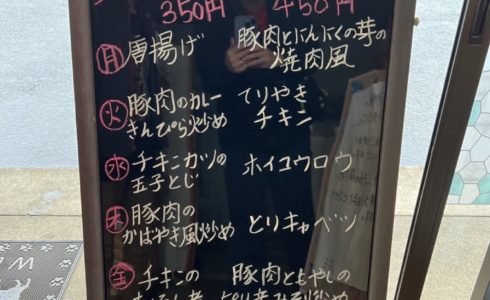 350円 450円
㊊ 唐揚げ 豚肉とにんにくの芽の
焼肉風
㊋ 豚肉のカレー てりやき
きんぴら炒め チキン
㊌ チキンカツの ホイコウロウ
玉子とじ
㊍ 豚肉の とりキャベツ
かばやき風炒め
㊎ チキンの 豚肉ともやしの